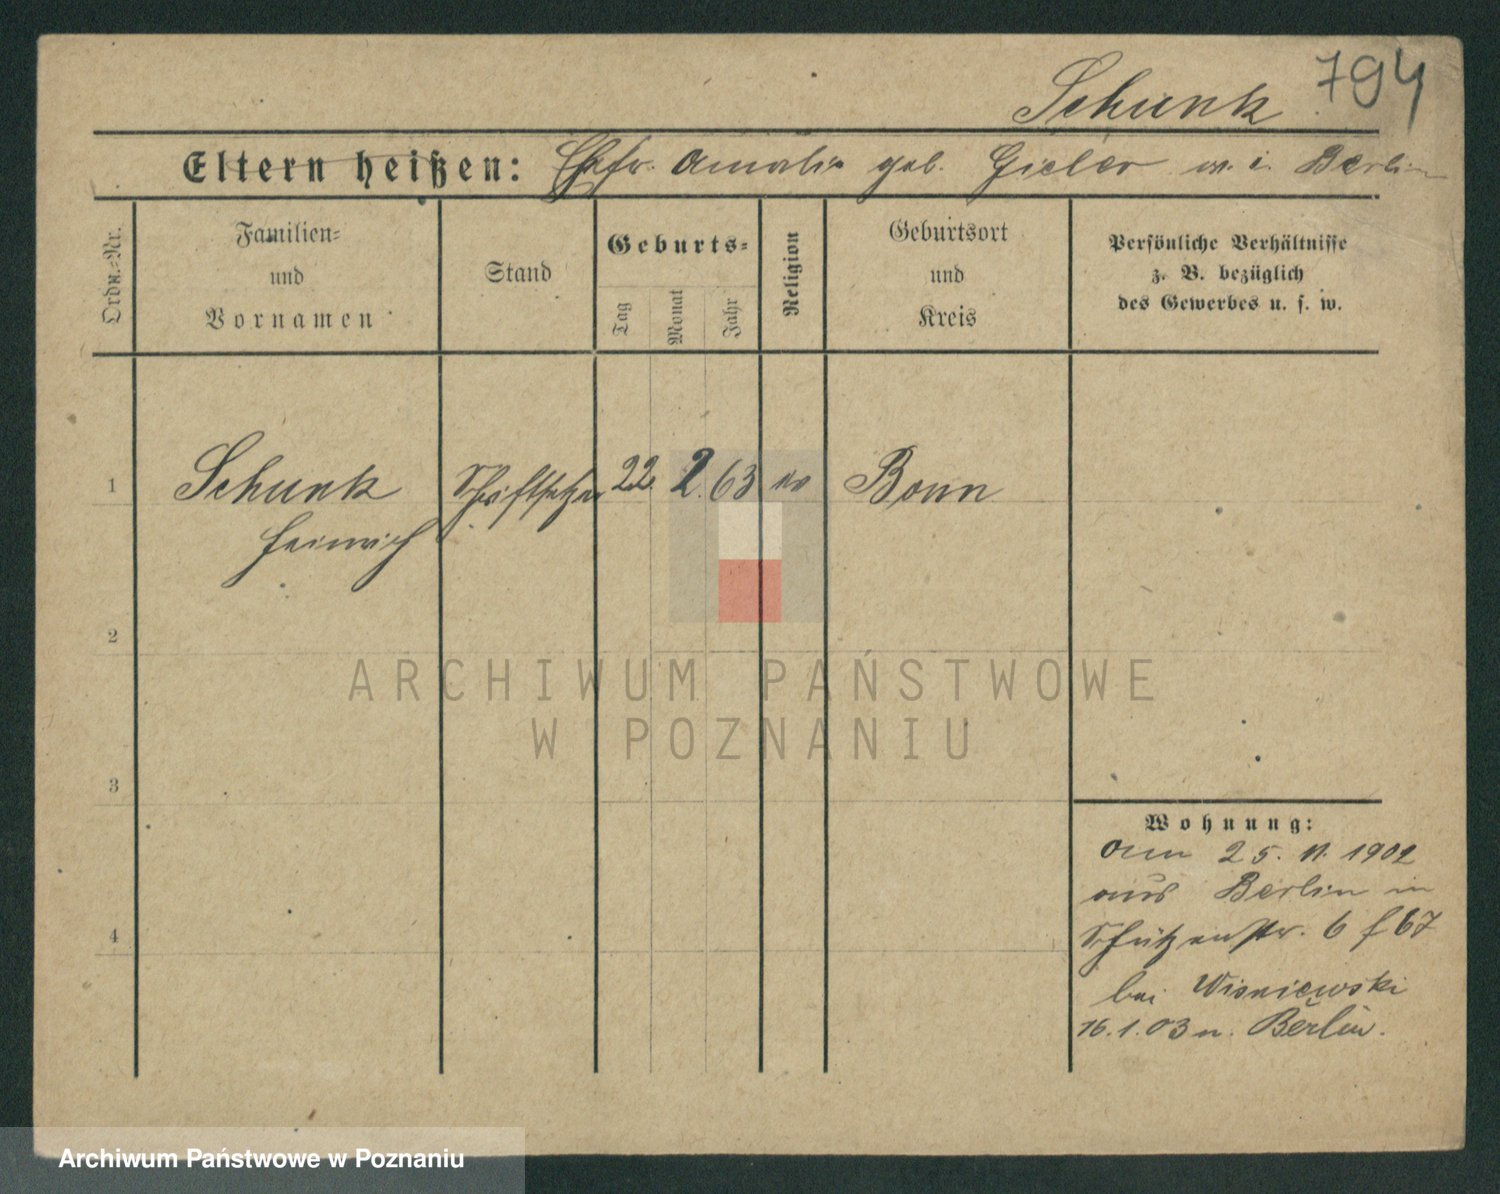 Schunk 794
Eltern heißen: Ehefr. Amalie geb. Gieler w. i. Berlin
Ordn.-Nr.
Familien-
und
Vornamen
Stand
Geburts-
Tag
Monat
Jahr
Religion
Geburtsort
und
Kreis
Persönliche Verhältnisse
z. B. bezüglich
des Gewerbes u. s. w.
1 Schunk Schriftsetzer 22. 2. 63 ev Bonn
Heinrich
2
3
4
Wohnung:
am 25. 11. 1902
aus Berlin in
Schützenstr. 6
bei Wisniewski
16. 1. 03 n. Berlin.
ARCHIWUM PAŃSTWOWE
W POZNANIU
Archiwum Państwowe w Poznaniu